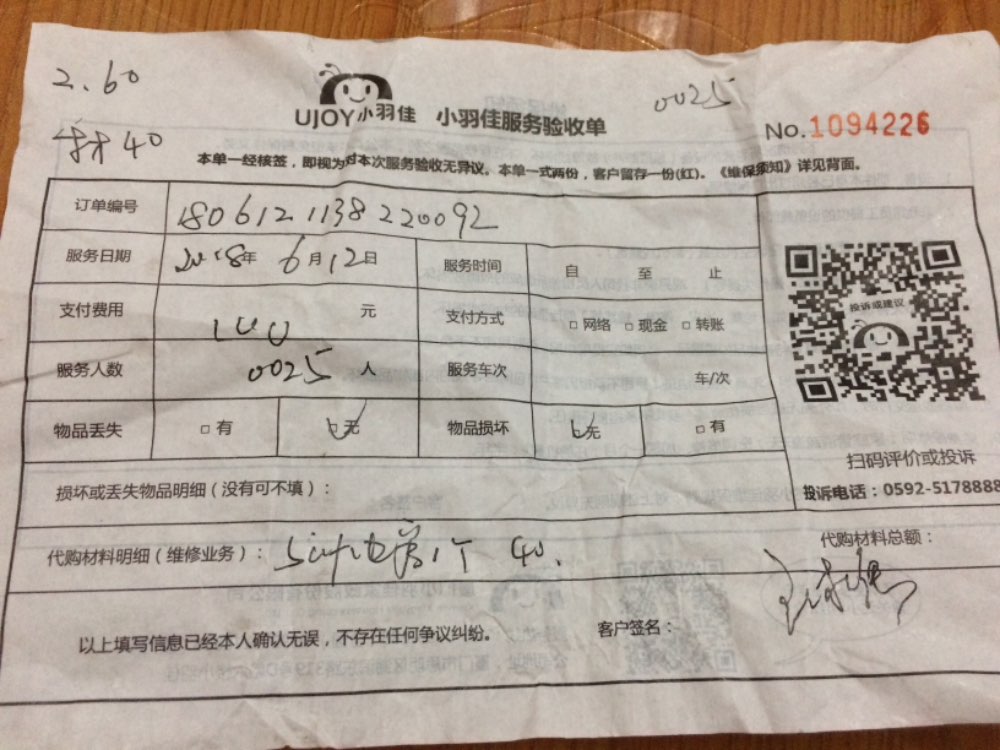 2.60
0025
材40
UJOY小羽佳 小羽佳服务验收单
No.1094226
本单一经核签，即视为对本次服务验收无异议。本单一式两份，客户留存一份(红)。《维保须知》详见背面。
订单编号 1806121138220092
服务日期 2018年 6月12日 服务时间 自 至 止
支付费用 100 元 支付方式 □网络 □现金 □转账
服务人数 0025 人 服务车次 车/次
物品丢失 □有 □无 物品损坏 □无 □有
投诉或建议
扫码评价或投诉
投诉电话：0592-5178888
损坏或丢失物品明细（没有可不填）：
代购材料明细（维修业务）： 1个 40.
代购材料总额：
以上填写信息已经本人确认无误，不存在任何争议纠纷。 客户签名：